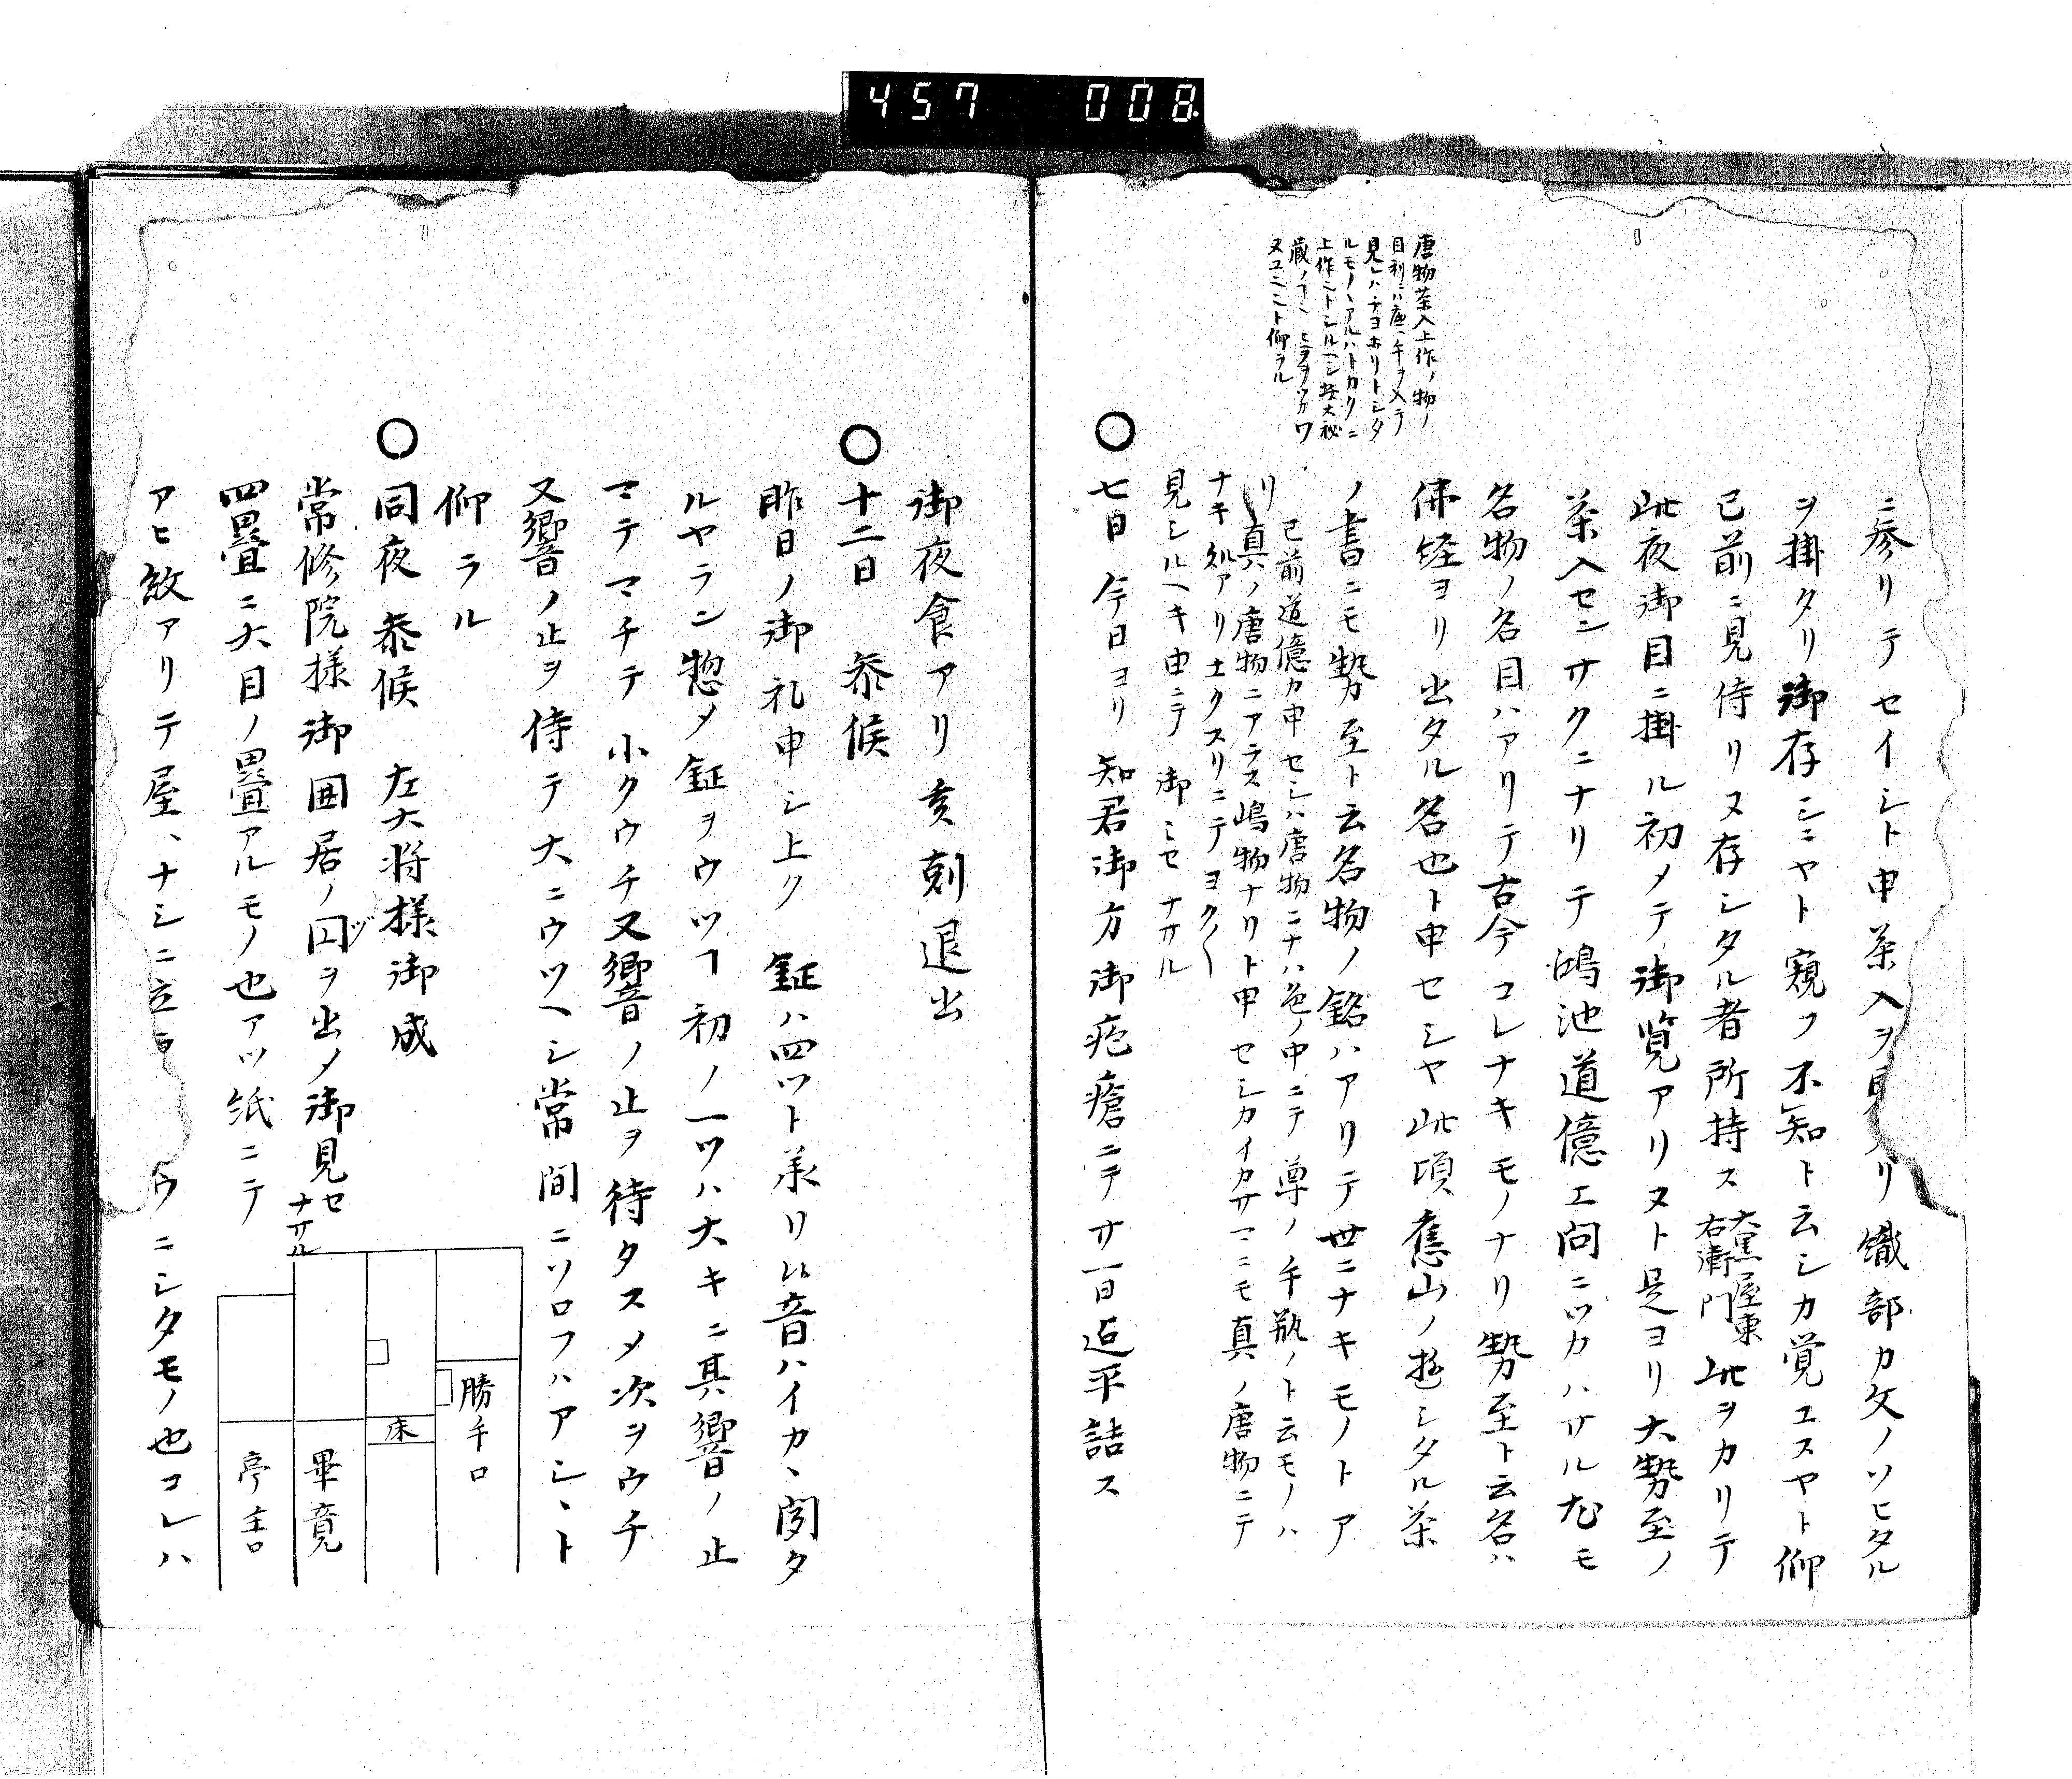 457 008.
唐物茶入上作ノ物ノ
目利ニハ
見レハチヨホリトシタ
ルモノヽアルハトカクニ
上作ントシルヘシ 大秘
蔵ノ
ヌユミント仰ラル
ニ参リテセイシト申茶入ヲ見 リ織部カ文ノソヒタル
ヲ掛タリ御存シニヤト窺フ不知ト云シカ覚ユスヤト仰
已前ニ見侍リヌ存シタル者所持ス 大黒屋東右衛門 此ヲカリテ
此夜御目ニ掛ル初メテ御覧アリヌト是ヨリ大勢至ノ
茶入センサクニナリテ鴻池道億エ問ニツカハサル尤モ
名物ノ名目ハアリテ古今コレナキモノナリ勢至ト云名ハ
佛経ヨリ出タル名也ト申セシヤ此頃舊山ノ極シタル茶
ノ書ニモ勢至ト云名物ノ銘ハアリテ世ニナキモノトア
リ 已前道億カ申セシハ唐物ニナハ色ノ中ニテ尊ノ手瓶ノト云モノハ
真ノ唐物ニアラス嶋物ナリト申セシカイカサマニモ真ノ唐物ニテ
ナキ処アリ土クスリニテヨク〱
見シルヘキ由ニテ御ミセナサル
〇七日 今日ヨリ知君御方御疱瘡ニテ廿一日迠平詰ス
御夜食アリ亥刻退出
〇十二日 泰候
昨日ノ御礼申シ上ク 鉦ハ四ツト承リ候音ハイカヽ聞タ
ルヤラン惣メ鉦ヲウツヿ初ノ一ツハ大キニ其響ノ止
マテマチテ小クウチ又響ノ止ヲ待タスメ次ヲウチ
又響ノ止ヲ侍テ大ニウツヘシ常間ニソロフハアシヽト
仰ラル
〇同夜泰候 左大将様御成
常修院様御囲居ノ図ヲ出メ御見セナサル
四畳ニ大目ノ畳アルモノ也アツ紙ニテ
アヒ紋アリテ屋ヽナシニ立 ウニシタモノ也コレハ
勝手口
床
畢竟
亭主口